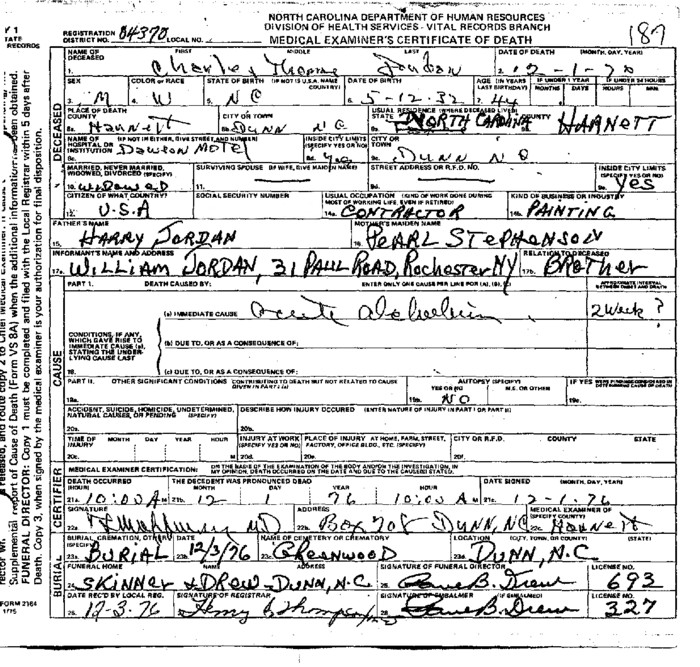 NORTH CAROLINA DEPARTMENT OF HUMAN RESOURCES
DIVISION OF HEALTH SERVICES - VITAL RECORDS BRANCH
MEDICAL EXAMINER'S CERTIFICATE OF DEATH
187
REGISTRATION DISTRICT NO. 04370 LOCAL NO.
NAME OF DECEASED FIRST MIDDLE LAST DATE OF DEATH (MONTH, DAY, YEAR)
1. Charles Thomas Jordan 2.
SEX COLOR or RACE STATE OF BIRTH (IF NOT IN U.S.A. NAME COUNTRY) DATE OF BIRTH AGE (IN YEARS LAST BIRTHDAY) IF UNDER 1 YEAR MONTHS DAYS IF UNDER 24 HOURS HOURS MIN.
3. M 4. W 5. NC 6. 5-12-32 7. 44
PLACE OF DEATH COUNTY CITY OR TOWN USUAL RESIDENCE (WHERE DECEASED LIVED) STATE COUNTY
8a. Harnett 8b. DUNN NC 9a. NORTH CAROLINA HARNETT
NAME OF HOSPITAL OR INSTITUTION (IF NOT IN EITHER, GIVE STREET AND NUMBER) INSIDE CITY LIMITS (SPECIFY YES OR NO) CITY OR TOWN
8c. Dawson MOTEL 8d. Yes 9c. DUNN NC
MARRIED, NEVER MARRIED, WIDOWED, DIVORCED (SPECIFY) SURVIVING SPOUSE (IF WIFE, GIVE MAIDEN NAME) STREET ADDRESS OR R.F.D. NO. INSIDE CITY LIMITS (SPECIFY YES OR NO)
10. WIDOWED 11. 9d. 9e. Yes
CITIZEN OF WHAT COUNTRY? SOCIAL SECURITY NUMBER USUAL OCCUPATION (KIND OF WORK DONE DURING MOST OF WORKING LIFE, EVEN IF RETIRED) KIND OF BUSINESS OR INDUSTRY
12. U.S.A 14a. CONTRACTOR 14b. PAINTING
FATHER'S NAME MOTHER'S MAIDEN NAME
15. HARRY JORDAN 16. PEARL STEPHENSON
INFORMANT'S NAME AND ADDRESS RELATION TO DECEASED
17a. WILLIAM JORDAN, 31 PAUL ROAD, Rochester NY 17b. BROTHER
PART 1. DEATH CAUSED BY: ENTER ONLY ONE CAUSE PER LINE FOR (A), (B), (C) APPROXIMATE INTERVAL BETWEEN ONSET AND DEATH
(a) IMMEDIATE CAUSE Acute Alcoholism 2 Week ?
CONDITIONS, IF ANY, WHICH GAVE RISE TO IMMEDIATE CAUSE (a), STATING THE UNDERLYING CAUSE LAST
(b) DUE TO, OR AS A CONSEQUENCE OF:
18. (c) DUE TO, OR AS A CONSEQUENCE OF:
PART II. OTHER SIGNIFICANT CONDITIONS CONTRIBUTING TO DEATH BUT NOT RELATED TO CAUSE GIVEN IN PART I (A) AUTOPSY (SPECIFY) YES OR NO M.E. OR OTHER IF YES WERE FINDINGS CONSIDERED IN DETERMINING CAUSE OF DEATH
19a. 19b. NO 19c.
ACCIDENT, SUICIDE, HOMICIDE, UNDETERMINED, NATURAL CAUSES, OR PENDING (SPECIFY) DESCRIBE HOW INJURY OCCURED (ENTER NATURE OF INJURY IN PART I OR PART II)
20a. 20b.
TIME OF INJURY MONTH DAY YEAR HOUR INJURY AT WORK (SPECIFY YES OR NO) PLACE OF INJURY AT HOME, FARM, STREET, FACTORY, OFFICE BLDG., ETC. (SPECIFY) CITY OR R.F.D. COUNTY STATE
20c. M 20d. 20e. 20f.
MEDICAL EXAMINER CERTIFICATION: ON THE BASIS OF THE EXAMINATION OF THE BODY AND/OR THE INVESTIGATION, IN MY OPINION, DEATH OCCURRED ON THE DATE AND DUE TO THE CAUSES STATED.
DEATH OCCURRED (HOUR) THE DECEDENT WAS PRONOUNCED DEAD MONTH DAY YEAR HOUR DATE SIGNED (MONTH, DAY, YEAR)
21a. 10:00 A M 21b. 12 1 76 10:00 A M 21c. 12-1-76
SIGNATURE ADDRESS MEDICAL EXAMINER OF (SPECIFY COUNTY)
22a. MD 22b. Box 708 DUNN, NC 22c. Harnett
BURIAL, CREMATION, OTHER (SPECIFY) DATE NAME OF CEMETERY OR CREMATORY LOCATION (CITY, TOWN, OR COUNTY) (STATE)
23a. BURIAL 23b. 12/3/76 23c. GREENWOOD 23d. DUNN, N.C.
FUNERAL HOME NAME ADDRESS SIGNATURE OF FUNERAL DIRECTOR LICENSE NO.
24. SKINNER & DREW - DUNN, N.C. 693
DATE REC'D BY LOCAL REG. SIGNATURE OF REGISTRAR SIGNATURE OF EMBALMER (IF EMBALMED) LICENSE NO.
327
DECEASED
CAUSE
CERTIFIER
BURIAL
Supplemental report of Cause of Death (Form VS 8A) when the additional information has been obtained.
FUNERAL DIRECTOR: Copy 1 must be completed and filed with the Local Registrar within 5 days after
Death. Copy 3, when signed by the medical examiner is your authorization for final disposition.
FORM 2164
1/75